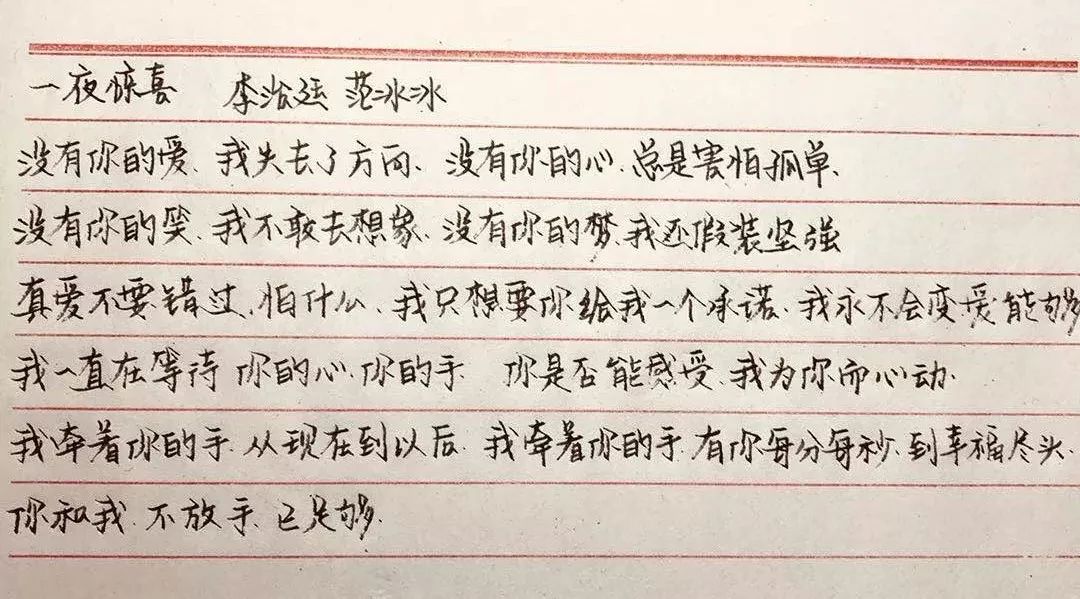 一夜惊喜 李治廷 范冰冰
没有你的爱、我失去了方向、没有你的心、总是害怕孤单、
没有你的笑、我不敢去想象、没有你的梦、我还假装坚强
真爱不要错过、怕什么、我只想要你给我一个承诺、我永不会变爱能够
我一直在等待 你的心、你的手 你是否能感受、我为你而心动、
我牵着你的手、从现在到以后、我牵着你的手、有你每分每秒、到幸福尽头、
你和我、不放手、已足够、